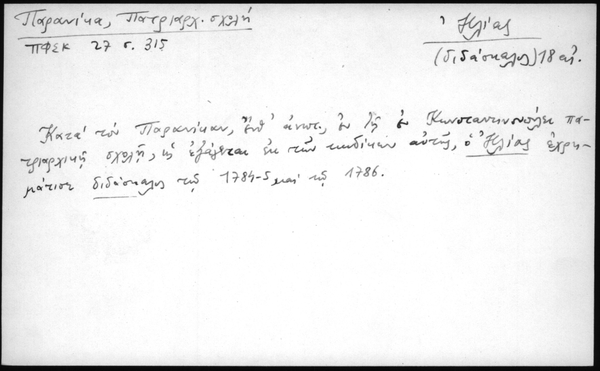 Παρανίκα, Πατριαρχ. σχολή
ΠΦΣΚ 27 σ. 315
Ἠλίας
(διδάσκαλος) 18 αἰ.
Κατὰ τὸν Παρανίκαν, ἔνθ' ἀνωτ., ἐν τῇ ἐν Κωνσταντινουπόλει πα-
τριαρχικῇ σχολῇ, ὡς ἐξάγεται ἐκ τῶν κωδίκων αὐτῆς, ὁ Ἠλίας ἐχρη-
μάτισε διδάσκαλος τῷ 1784-5 καὶ τῷ 1786.